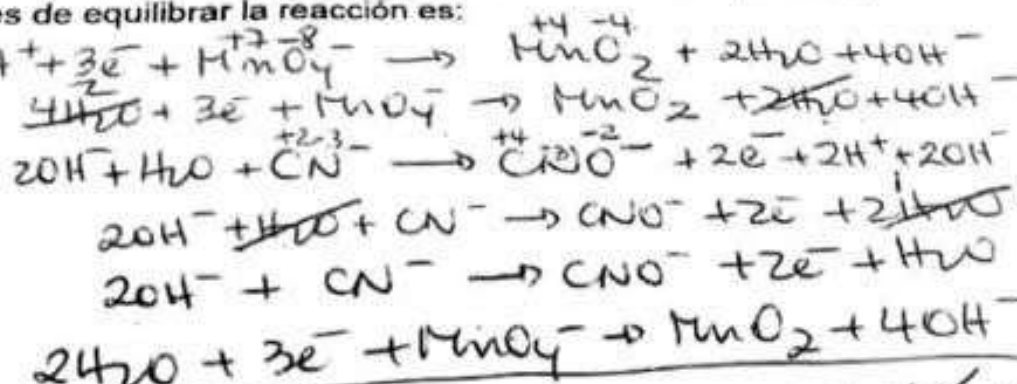 es de equilibrar la reacción es:
+ + 3e⁻ + MnO₄⁻ → MnO₂ + 2H₂O + 4OH⁻
4H₂O + 3e⁻ + MnO₄⁻ → MnO₂ + 2H₂O + 4OH⁻
2OH⁻ + H₂O + CN⁻ → CNO⁻ + 2e⁻ + 2H⁺ + 2OH⁻
2OH⁻ + H₂O + CN⁻ → CNO⁻ + 2e⁻ + 2H₂O
2OH⁻ + CN⁻ → CNO⁻ + 2e⁻ + H₂O
2H₂O + 3e⁻ + MnO₄⁻ → MnO₂ + 4OH⁻